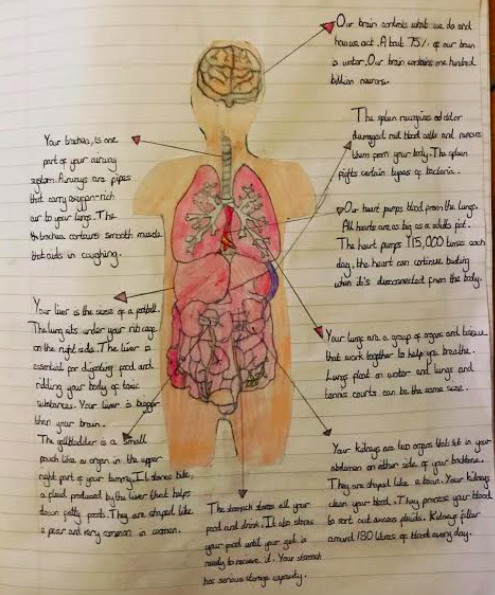 Our brain controls what we do and
how we act. About 75% of our brain
is water. Our brain contains one hundred
billion neurons.
The spleen recognises old or
damaged red blood cells and removes
them from your body. The spleen
fights certain types of bacteria.
Your trachea, is one
part of your airway
system. Airways are pipes
that carry oxygen-rich
air to your lungs. The
trachea contains smooth muscle
that aids in coughing.
Our heart pumps blood from the lungs.
All hearts are as big as a adults fist.
The heart pumps 115,000 times each
day, the heart can continue beating
when it's disconnected from the body.
Your liver is the size of a football.
The lung sits under your rib cage
on the right side. The liver is
essential for digesting food and
ridding your body of toxic
substances. Your liver is bigger
then your brain.
Your lungs are a group of organs and tissue
that work together to help you breathe.
Lungs float on water and lungs and
tennis courts can be the same size.
The gallbladder is a small
pouch like a organ in the upper
right part of your tummy. It stores bile,
a fluid produced by the liver that helps
down fatty foods. They are shaped like
a pear and very common in women.
The stomach stores all your
food and drink. It also stores
your food until your gut is
ready to receive it. Your stomach
has serious storage capacity.
Your kidneys are two organs that sit in your
abdomen on either side of your backbone.
They are shaped like a bean. Your kidneys
clean your blood. They process your blood
to sort out excess fluids. Kidneys filter
around 180 litres of blood every day.